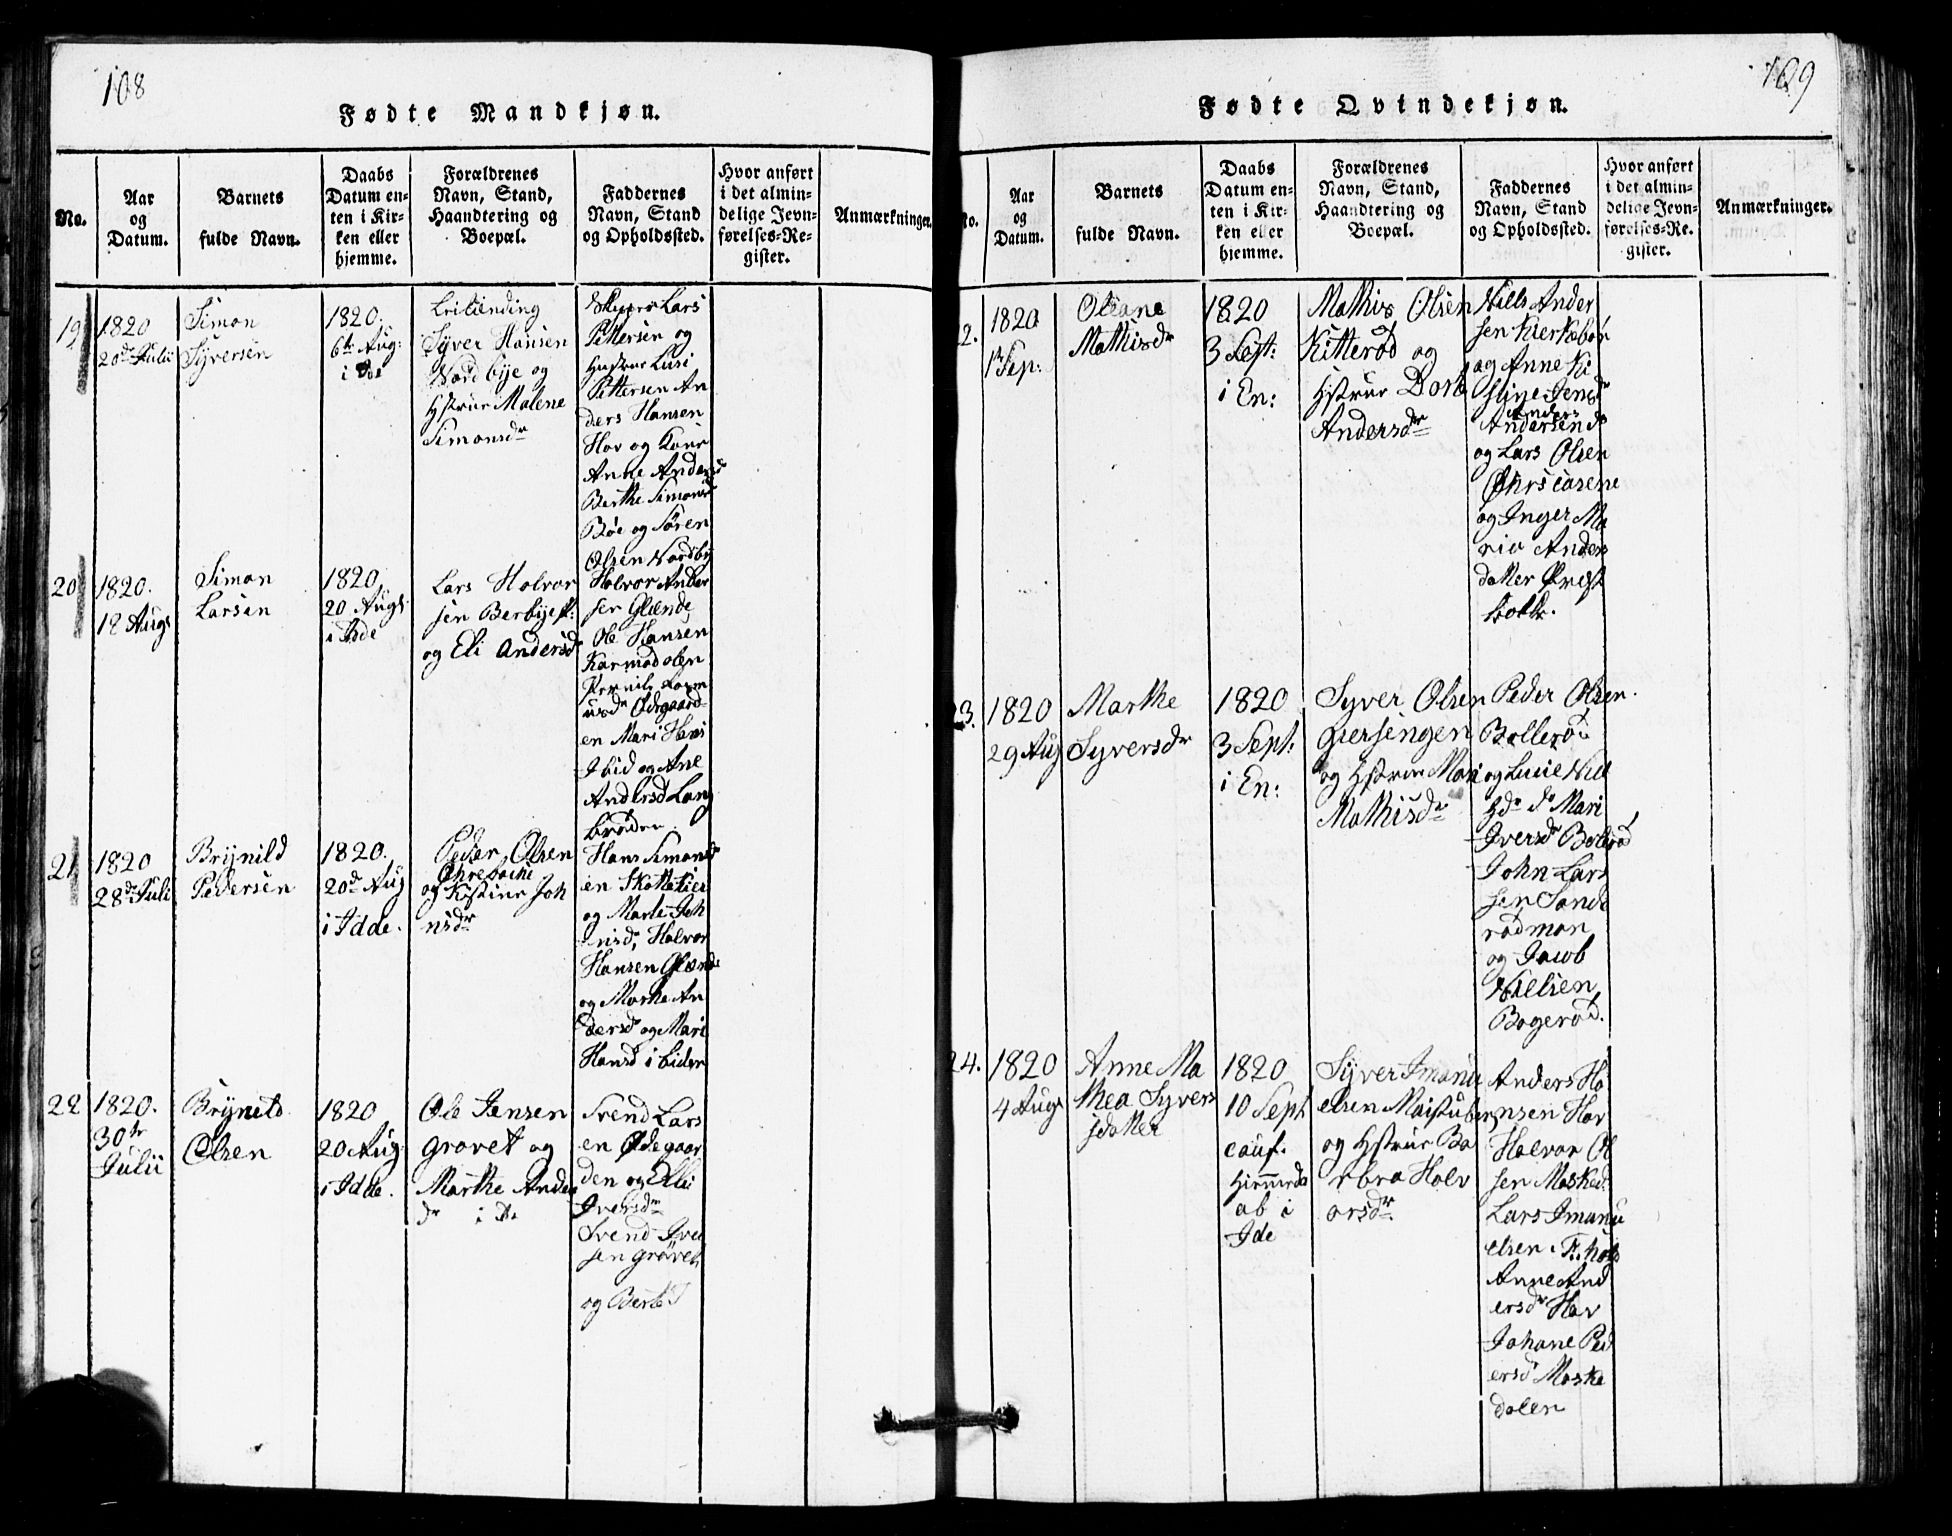 108
Fødte Mandkjøn.
No.
Aar
og
Datum.
Barnets
fulde Navn.
Daabs
Datum en-
ten i Kir-
ken eller
hjemme.
Forældrenes
Navn, Stand,
Haandtering og
Boepæl.
Faddernes
Navn, Stand
og Opholdssted.
Hvor anført
i det almin-
delige Jevn-
førelses-Re-
gister.
Anmærkninger.
19
1820
20de Julii
Simon
Syversen
1820.
6te Aug:
i do
Leilænding
Syver Hansen
Nordbye og
Hstrue Malene
Simonsdr
Lars
Pettersen og
Hustrue
Pettersen An
ders Hansen
Hov og Kone
Anne Andersd
Berthe Simonsd
Bøe og Sören
Olsen Nordby
20
1820.
18 Augs
Simon
Larsen
1820
20 Augs
i Ide
Lars Halvor
sen Berbye
og Eli Andersd
Halvor Ander
sen Glende
Ole Hansen
usdr Ødegaard
en Mari Hans
Ibid og Ane
Andersd Lang
bråden
21
1820
28de Juli
Brynild
Pedersen
1820.
20d Aug
i Idde.
Peder Olsen
og Kistine Joh
nsdr
Hans Simons
en Skottekier
og Marte Joh
nsd, Halvor
Hansen Glænde
og Marthe An
dersd og Mari
Hansd i Liden
22
1820.
30te
Julii
Bryneld
Olsen
1820
20 Aug
i Idde.
Ole Jensen
Grövet og
Marthe Ander
dr i do
Svend Lars
en Ødegaar
den og Elli
Iversdr
Svend Iver
sen Grövet
og Berte
109
Fødte Qvindekjøn.
No.
Aar
og
Datum.
Barnets
fulde Navn.
Daabs
Datum en-
ten i Kir-
ken eller
hjemme.
Forældrenes
Navn, Stand,
Haandtering og
Boepæl.
Faddernes
Navn, Stand
og Opholdssted.
Hvor anført
i det almin-
delige Jevn-
førelses-Re-
gister.
Anmærkninger.
2.
1820
1te Sep:
Oleane
Mathisdr
1820
3 Sept:
i En:
Mathis Olsen
Kitteröd og
Hstrue Dort
Andersdr
Niels Ander
sen Kierkebøe
og Anne Ki
stine Jensdr
Anders
Andersen do
og Lars Olsen
og Inger Ma
ria Anders
datter Præst
bakke.
23.
1820
29 Aug
Marthe
Syversdr
1820
3 Sept:
i En:
Syver Olsen
Giersengen
og Hstrue Mari
Mathisdr
Peder Olsen
Bolleröd
og Lucie Niel
do Mari
Iversdr Bolleröd
John Lars
sen Sand
rödmon
og Jacob
Nielsen
Bogeröd.
24.
1820
4 Augs
Anne Ma
thea Syvers
datter
1820
10 Sept
conf.
Hiemmeda
ab i
Ide
Syver Imanu
elsen Maistuben
og Hstrue Ba
rbra Halv
orsdr
Anders Ha
nsen Hov
Halvor Ol
sen Masked.
Lars Imanu
elsen
Anne And
ersdr Hov
Johane Ped
ersd Maske
dalen